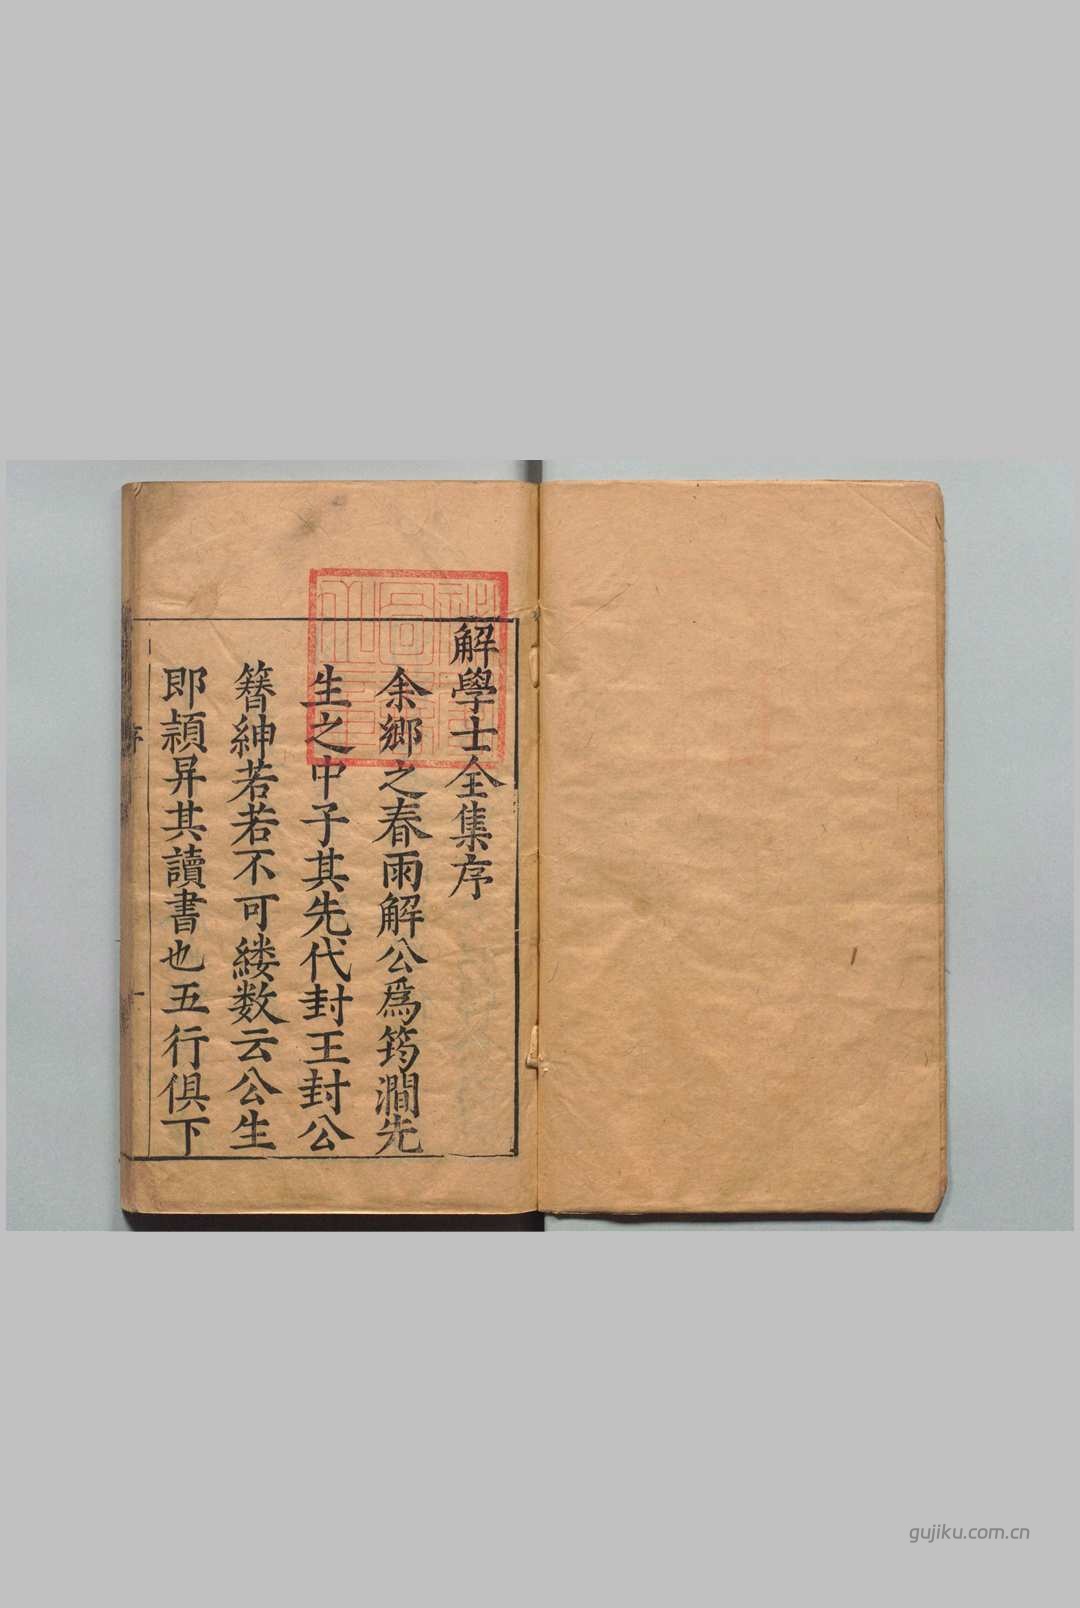 解學士全集序
余鄉之春雨解公爲筠澗先
生之中子其先代封王封公
簪紳若若不可縷数云公生
即頴昇其讀書也五行俱下
序
一
gujiku.com.cn